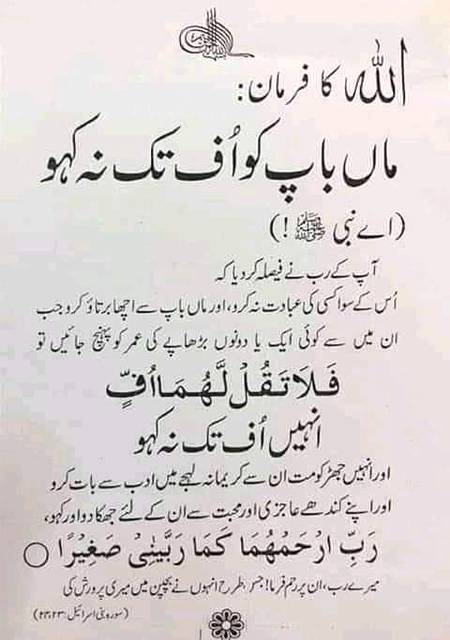 اللہ کا فرمان:
ماں باپ کو اُف تک نہ کہو
(اے نبی ﷺ !)
آپ کے رب نے فیصلہ کر دیا کہ
اُس کے سوا کسی کی عبادت نہ کرو، اور ماں باپ سے اچھا برتاؤ کرو جب
ان میں سے کوئی ایک یا دونوں بڑھاپے کی عمر کو پہنچ جائیں تو
فَلَا تَقُلْ لَّهُمَا اُفٍّ
انہیں اُف تک نہ کہو
اور انہیں جھڑکو مت ان سے کریمانہ لہجے میں ادب سے بات کرو
اور اپنے کندھے عاجزی اور محبت سے ان کے لئے جھکا دو اور کہو،
رَبِّ ارْحَمْهُمَا كَمَا رَبَّيٰنِىْ صَغِيْرًا ○
میرے رب، ان پر رحم فرما! جس طرح انہوں نے بچپن میں میری پرورش کی
(سورہ بنی اسرائیل: ۲۳،۲۴)